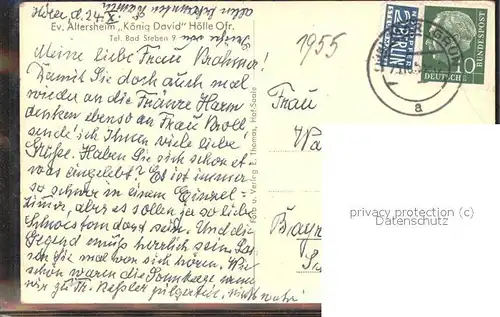 Hölle, d. 24. X.
Ev. Altersheim „König David" Hölle Ofr.
Tel. Bad Steben 9
1955
Meine liebe Frau Brahmer!
Damit Sie doch auch mal
wieder an die Fränze Harm
denken ebenso an Frau Broll,
sende ich Ihnen viele liebe
Grüße. Haben Sie sich schon et-
was eingelebt? Es ist immer
so schwer in einem Einzel-
zimmer, aber es sollen ja so liebe
Schwestern dort sein. Und die
Gegend muß herrlich sein. Las-
sen Sie mal von sich hören. Wie
schön waren die Sonntage wenn
wir zu Th. Kessler pilgerten, nicht wahr
Foto u. Verlag E. Thomas, Hof-Saale
Frau
Bayr
NOTOPFER
2 BERLIN
STEUERMARKE
DEUTSCHE BUNDESPOST
10
a
privacy protection (c)
Datenschutz